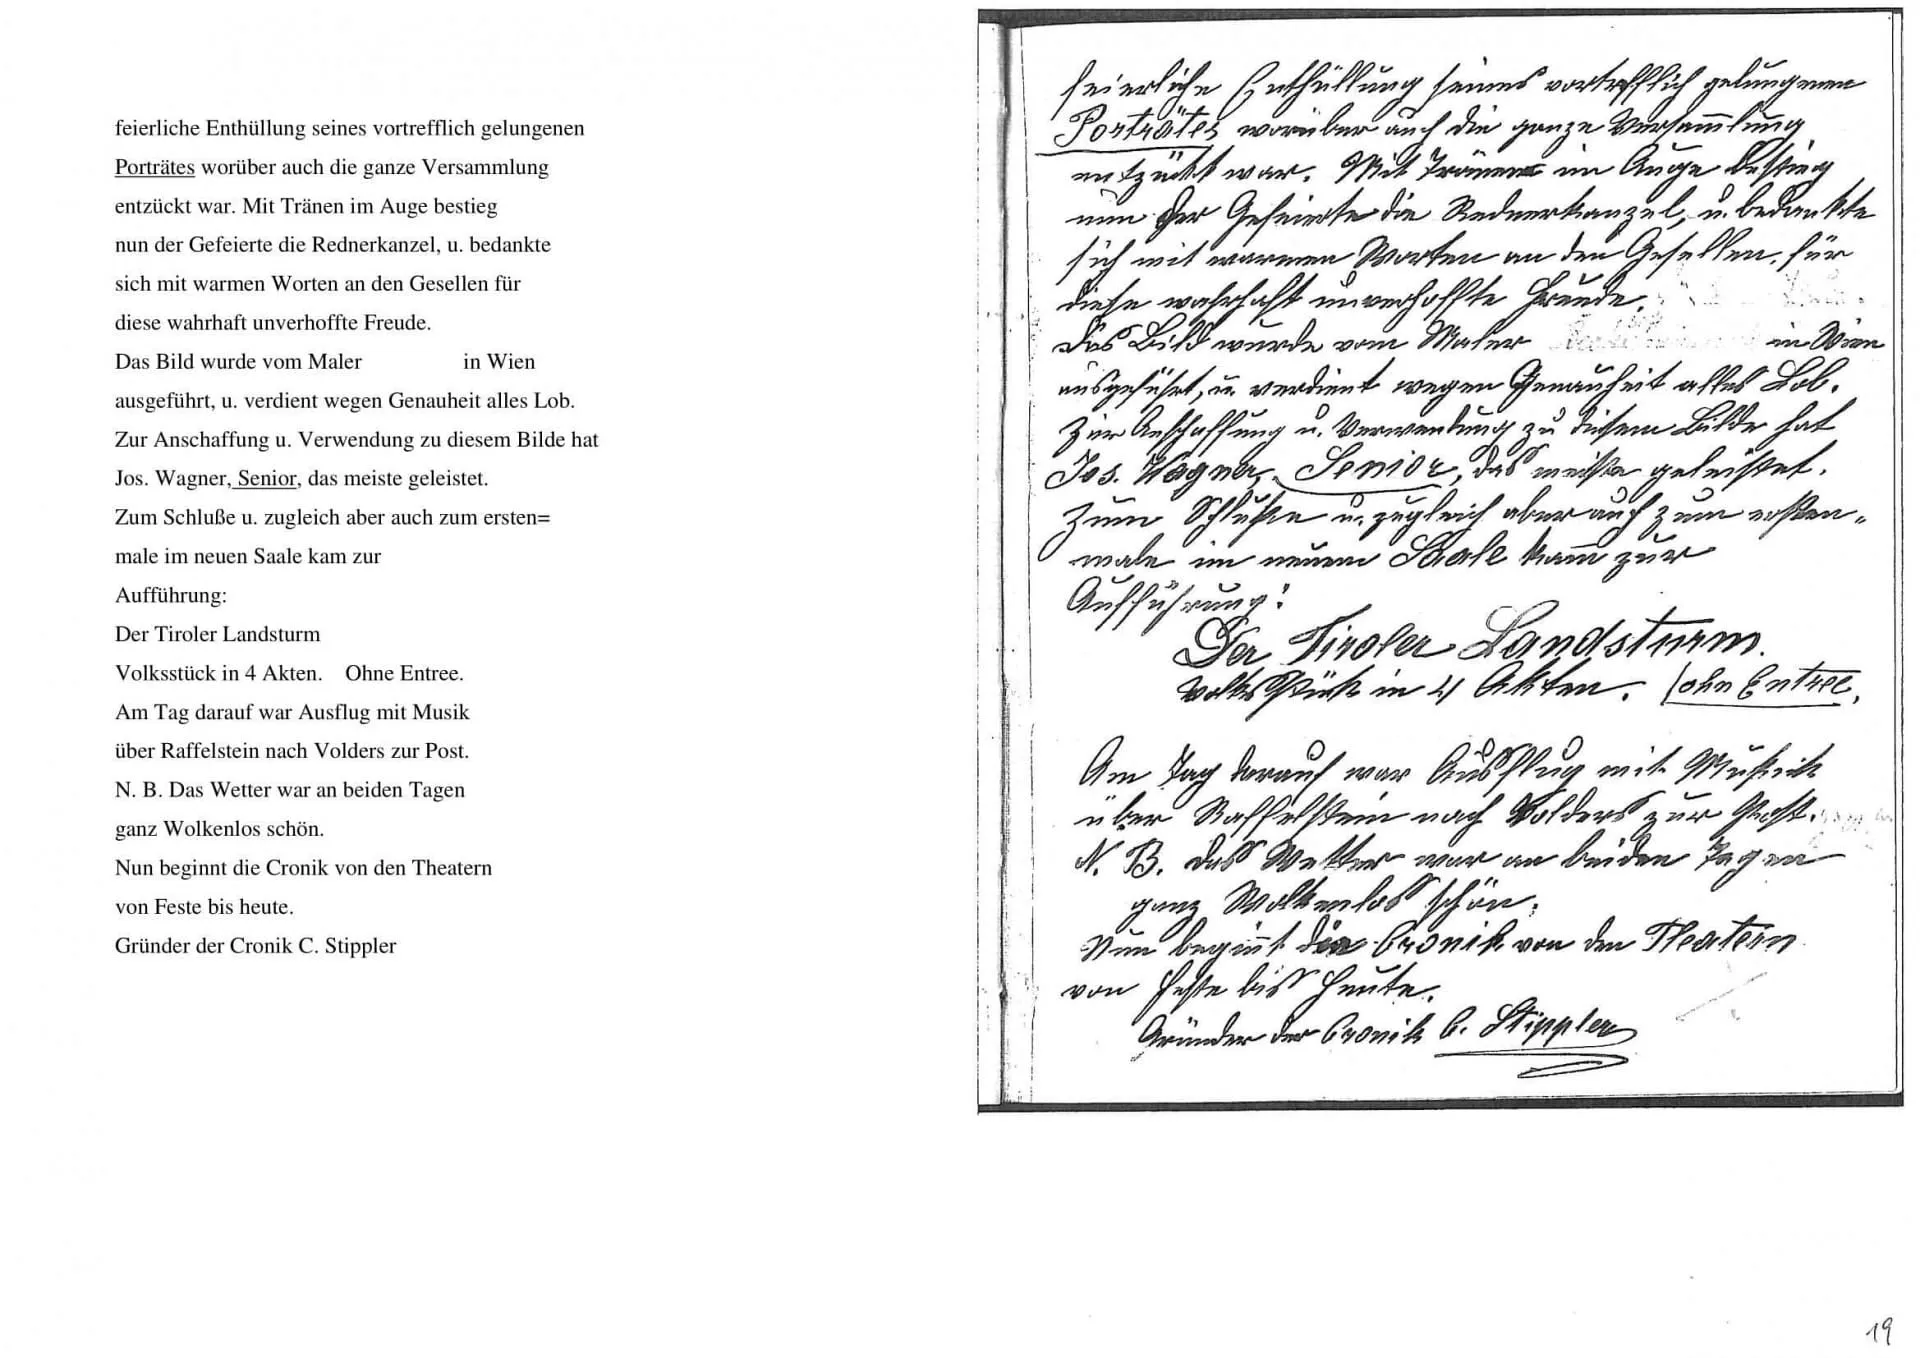 feierliche Enthüllung seines vortrefflich gelungenen
Porträtes worüber auch die ganze Versammlung
entzückt war. Mit Tränen im Auge bestieg
nun der Gefeierte die Rednerkanzel, u. bedankte
sich mit warmen Worten an den Gesellen für
diese wahrhaft unverhoffte Freude.
Das Bild wurde vom Maler in Wien
ausgeführt, u. verdient wegen Genauheit alles Lob.
Zur Anschaffung u. Verwendung zu diesem Bilde hat
Jos. Wagner, Senior, das meiste geleistet.
Zum Schluße u. zugleich aber auch zum ersten=
male im neuen Saale kam zur
Aufführung:
Der Tiroler Landsturm
Volksstück in 4 Akten. Ohne Entree.
Am Tag darauf war Ausflug mit Musik
über Raffelstein nach Volders zur Post.
N. B. Das Wetter war an beiden Tagen
ganz Wolkenlos schön.
Nun beginnt die Cronik von den Theatern
von Feste bis heute.
Gründer der Cronik C. Stippler
feierliche Enthüllung seines vortrefflich gelungenen
Porträtes worüber auch die ganze Versammlung
entzückt war. Mit Tränen im Auge bestieg
nun der Gefeierte die Rednerkanzel, u. bedankte
sich mit warmen Worten an den Gesellen, für
diese wahrhaft unverhoffte Freude.
Das Bild wurde vom Maler in Wien
ausgeführt, u. verdient wegen Genauheit alles Lob.
Zur Anschaffung u. Verwendung zu diesem Bilde hat
Jos. Wagner, Senior, das meiste geleistet.
Zum Schluße u. zugleich aber auch zum ersten=
male im neuen Saale kam zur
Aufführung:
Der Tiroler Landsturm.
Volksstück in 4 Akten. (ohne Entree.
Am Tag darauf war Ausflug mit Musik
über Raffelstein nach Volders zur Post.
N. B. Das Wetter war an beiden Tagen
ganz Wolkenlos schön.
Nun beginnt die Cronik von den Theatern
von Feste bis heute.
Gründer der Cronik C. Stippler
19